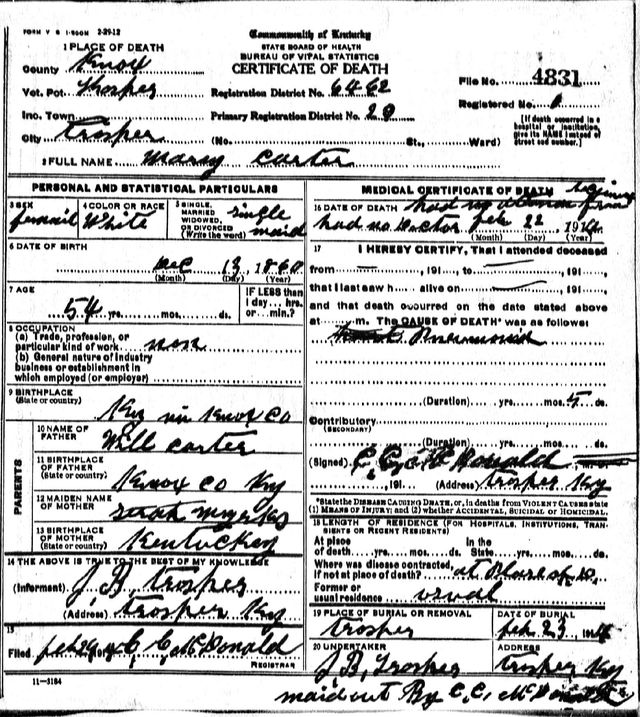 FORM V S 1-500M 2-29-12
Commonwealth of Kentucky
STATE BOARD OF HEALTH
BUREAU OF VITAL STATISTICS
CERTIFICATE OF DEATH
1 PLACE OF DEATH
County Knox
Vot. Pct. Trosper
Inc. Town
City Trosper (No. St., Ward)
Registration District No. 6462
Primary Registration District No. 20
File No. 4831
Registered No.
[If death occurred in a hospital or institution, give its NAME instead of street and number.]
2 FULL NAME Marry Carter
PERSONAL AND STATISTICAL PARTICULARS
3 SEX femail
4 COLOR OR RACE White
5 SINGLE, MARRIED WIDOWED, OR DIVORCED (Write the word) single maid
6 DATE OF BIRTH
Dec 13, 1860
(Month) (Day) (Year)
7 AGE
54 yrs. mos. ds.
IF LESS than 1 day hrs. or min.?
8 OCCUPATION
(a) Trade, profession, or particular kind of work non
(b) General nature of industry business or establishment in which employed (or employer)
9 BIRTHPLACE
(State or country) Ky in Knox Co
PARENTS
10 NAME OF FATHER Will Carter
11 BIRTHPLACE OF FATHER (State or country) Knox Co Ky
12 MAIDEN NAME OF MOTHER Sarah
13 BIRTHPLACE OF MOTHER (State or country) Kentuckey
14 THE ABOVE IS TRUE TO THE BEST OF MY KNOWLEDGE
(Informant) J B, Trosper
(Address) trosper Ky
15
Filed feb 29 C C McDonald
REGISTRAR
11-3184
MEDICAL CERTIFICATE OF DEATH
16 DATE OF DEATH had no
had no Doctor feb 22, 1914
(Month) (Day) (Year)
17 I HEREBY CERTIFY, That I attended deceased
from , 191 , to , 191 ,
that I last saw h alive on , 191 ,
and that death occurred on the date stated above
at m. The CAUSE OF DEATH* was as follows:
Pneumonia
(Duration) yrs. mos. 5 ds.
Contributory
(SECONDARY)
(Duration) yrs. mos. ds.
(Signed) C, C, Mc Donald
, 191 (Address) trosper Ky
*State the DISEASE CAUSING DEATH, or, in deaths from VIOLENT CAUSES state
(1) MEANS OF INJURY; and (2) whether ACCIDENTAL, SUICIDAL or HOMICIDAL.
18 LENGTH OF RESIDENCE (FOR HOSPITALS, INSTITUTIONS, TRANSIENTS OR RECENT RESIDENTS)
At place of death yrs. mos. ds. In the State yrs. mos. ds.
Where was disease contracted,
if not at place of death? at Place of D.
Former or usual residence usual
19 PLACE OF BURIAL OR REMOVAL
trosper
DATE OF BURIAL
feb 23, 1914
20 UNDERTAKER
J B, Trosper
ADDRESS
trosper Ky
maid out By C, C, McDonald